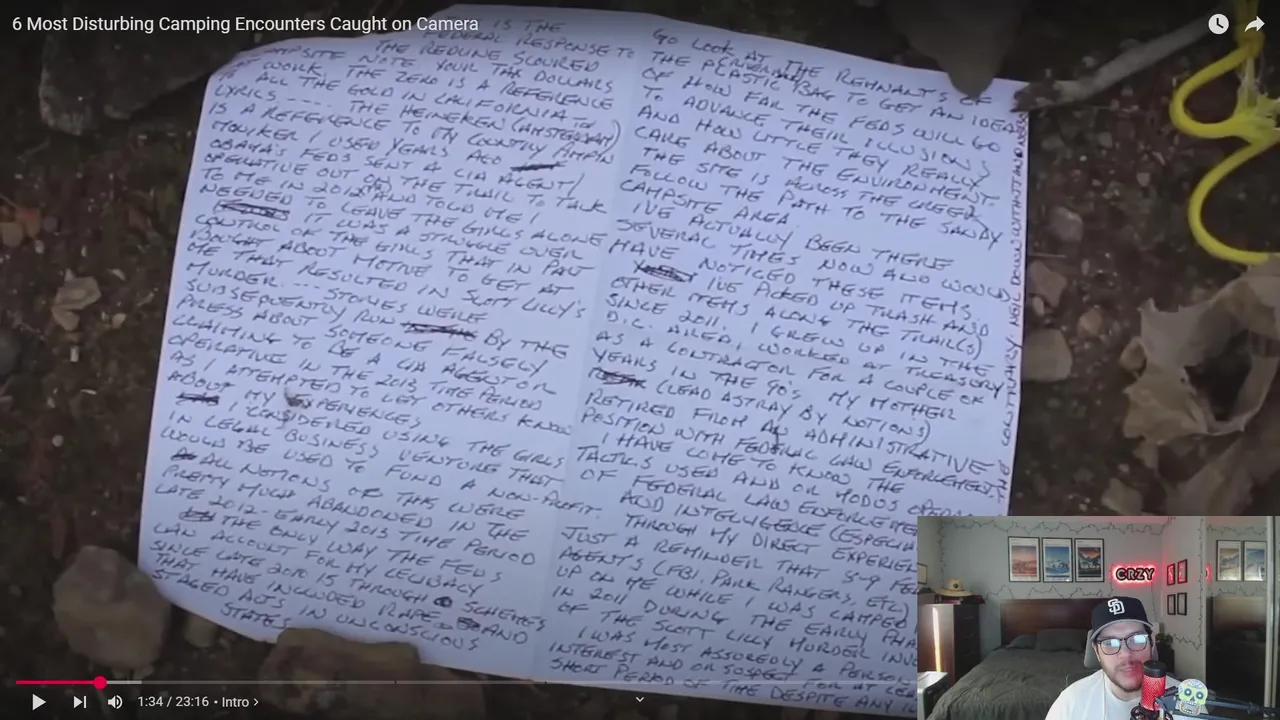 6 Most Disturbing Camping Encounters Caught on Camera
IS THE
FEDERAL RESPONSE TO
CAMPSITE NOTE YOUR TAX DOLLARS
AT WORK. THE REDLINE SCOURED
TO ALL THE ZERO IS A REFERENCE
LYRICS ---- THE GOLD IN CALIFORNIA
IS A REFERENCE TO MY COUNTRY PIMPIN
THE HEINEKEN (AMSTERDAM)
MONIKER I USED YEARS AGO
OBAMA'S FEDS SENT A CIA AGENT/
OPERATIVE OUT ON THE TRAIL TO TALK
TO ME IN 2012 AND TOLD ME I
NEEDED TO LEAVE THE GIRLS ALONE
IT WAS A STRUGGLE OVER
CONTROL OF THE GIRLS THAT IN PART
BOUGHT ABOUT MOTIVE TO GET AT
ME THAT RESULTED IN SCOTT LILLY'S
MURDER --- STORIES WERE
SUBSEQUENTLY RUN BY THE
PRESS ABOUT SOMEONE FALSELY
CLAIMING TO BE A CIA AGENT OR
OPERATIVE IN THE 2013 TIME PERIOD
AS I ATTEMPTED TO LET OTHERS KNOW
ABOUT MY EXPERIENCES
I CONSIDERED USING THE GIRLS
IN LEGAL BUSINESS VENTURE THAT
WOULD BE USED TO FUND A NON-PROFIT.
ALL NOTIONS OF THIS WERE
PRETTY MUCH ABANDONED IN THE
LATE 2012-EARLY 2013 TIME PERIOD
THE ONLY WAY THE FEDS
CAN ACCOUNT FOR MY LEGACY
SINCE LATE 2010 IS THROUGH SCHEMES
THAT HAVE INCLUDED RAPE AND
STAGED ACTS IN UNCONSCIOUS
STATES
GO LOOK AT THE REMNANTS OF
THE PLASTIC BAG TO GET AN IDEA
OF HOW FAR THE FEDS WILL GO
TO ADVANCE THEIR ILLUSIONS
AND HOW LITTLE THEY REALLY
CARE ABOUT THE ENVIRONMENT
THE SITE IS ACROSS THE CREEK
FOLLOW THE PATH TO THE SANDY
CAMPSITE AREA
I'VE ACTUALLY BEEN THERE
SEVERAL TIMES NOW AND WOULD
HAVE NOTICED THESE ITEMS
I'VE PICKED UP TRASH AND
OTHER ITEMS ALONG THE TRAIL(S)
SINCE 2011. I GREW UP IN THE
D.C. AREA, WORKED AT TREASURY
AS A CONTRACTOR FOR A COUPLE OF
YEARS IN THE 90'S, MY MOTHER
(LEAD ASTRAY BY NOTIONS)
RETIRED FROM AN ADMINISTRATIVE
POSITION WITH FEDERAL LAW ENFORCEMENT.
I HAVE COME TO KNOW THE
TACTICS USED AND OR MODUS
OF FEDERAL LAW
AND INTELLIGENCE
THROUGH MY DIRECT
JUST A REMINDER THAT 8-9
AGENTS (FBI, PARK RANGERS, ETC)
UP ON ME WHILE I WAS CAMPED
IN 2011 DURING THE EARLY
OF THE SCOTT LILLY MURDER
I WAS MOST ASSUREDLY A PERSON
INTEREST AND OR SUSPECT FOR AT
SHORT PERIOD OF TIME DESPITE ANY
CRZY
SD
1:34 / 23:16 • Intro